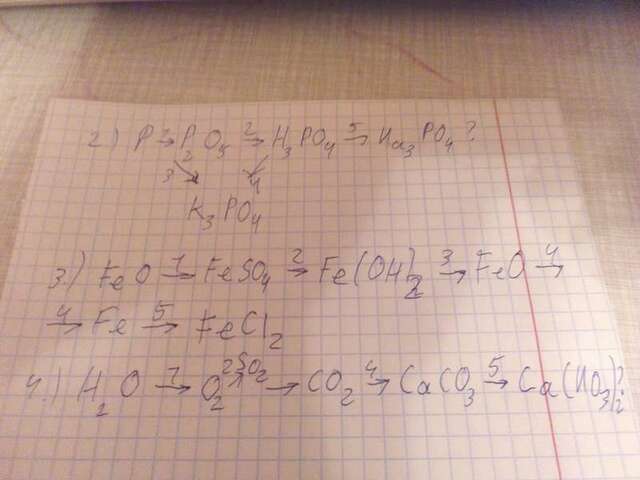 2) P → P₂O₅ 2→ H₃PO₄ 5→ Na₃PO₄?
3 4
K₃PO₄
3) FeO 1→ FeSO₄ 2→ Fe(OH)₂ 3→ FeO 4→
4→ Fe 5→ FeCl₂
4.) H₂O 1→ O₂ 2 SO₂ → CO₂ 4→ CaCO₃ 5→ Ca(NO₃)₂?